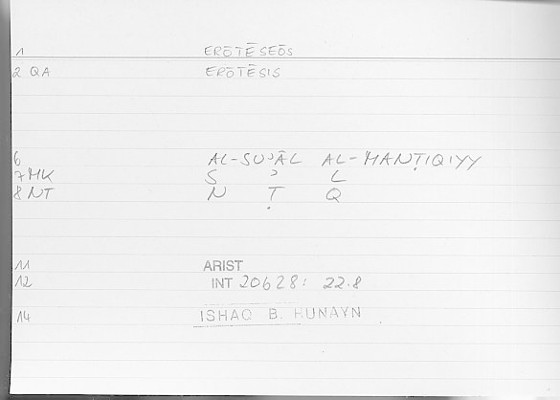 1 ERŌTĒSEŌS
2 QA ERŌTĒSIS
6 AL-SUʾĀL AL-MANṬIQIYY
7 MK S ʾ L
8 NT N Ṭ Q
11 ARIST
12 INT 20628: 22.8
14 ISHAQ B. HUNAYN